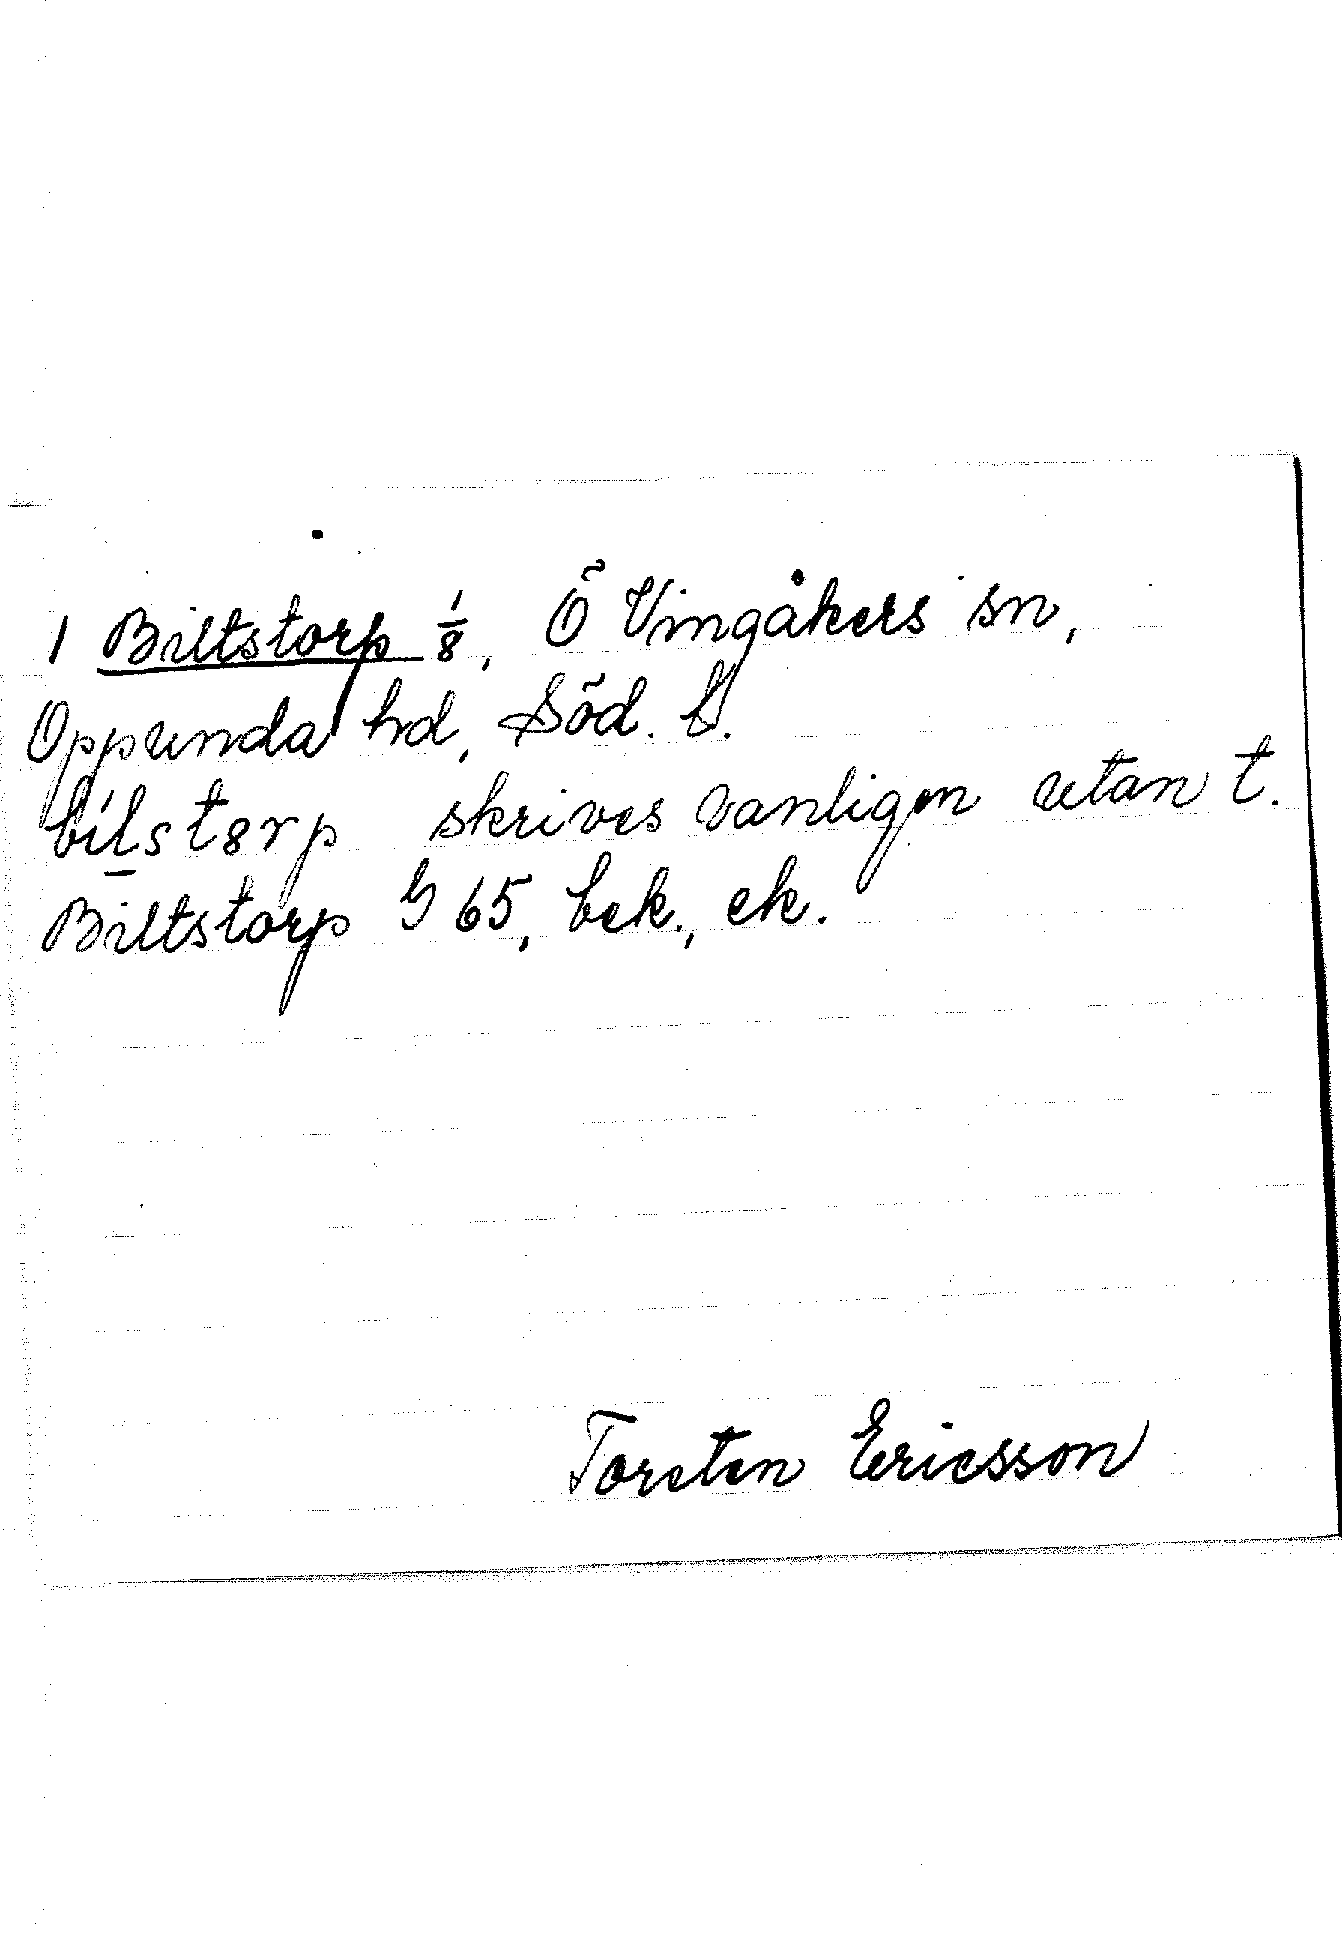 1 Biltstorp 1/8, Ö Vingåkers sn,
Oppunda hd, Söd. l.
bílstɜrp skrives vanligen utan t.
Biltstorp G 65, bek., ek.
Torsten Ericsson